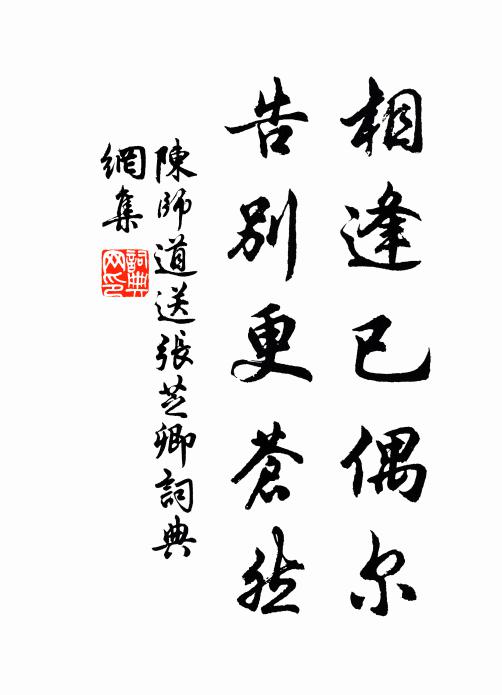 相逢已偶尔
告别更蒼然
陳師道送張芝卿詞典
網集
詞典
网印